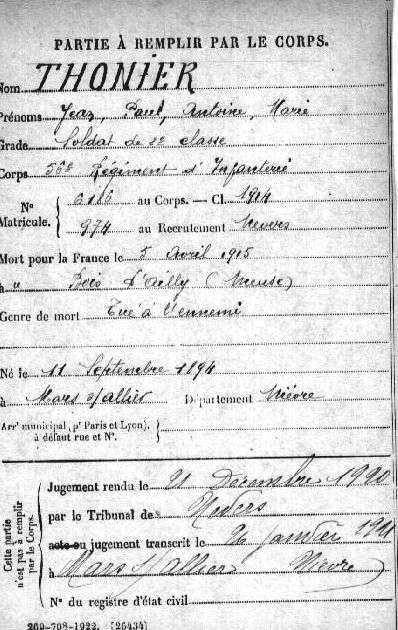 PARTIE À REMPLIR PAR LE CORPS.
Nom THONIER
Prénoms Jean, Paul, Antoine, Marie
Grade Soldat de 2e classe
Corps 56e Régiment d'Infanterie
N° Matricule. { 6116 au Corps. — Cl. 1914
974 au Recrutement Nevers
Mort pour la France le 5 Avril 1915
à u Bois d'Ailly (Meuse)
Genre de mort Tué à l'ennemi
Né le 11 Septembre 1894
à Mars s/allier Département Nièvre
Arrt municipal (pr Paris et Lyon), à défaut rue et N°. {
Cette partie n'est pas à remplir par le Corps.
Jugement rendu le 21 Décembre 1920
par le Tribunal de Nevers
acte ou jugement transcrit le 26 Janvier 1921
à Mars s/allier Nièvre
N° du registre d'état civil
209-708-1922. [26434]